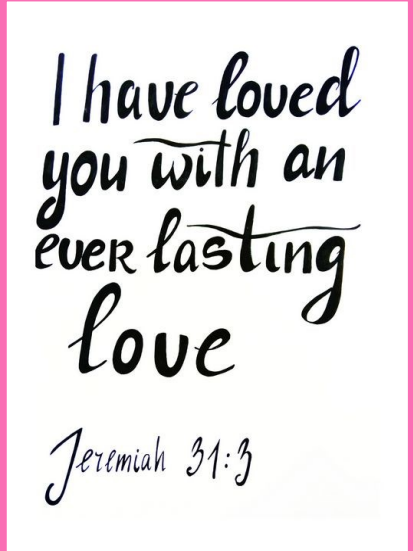 I have loved
you with an
everlasting
love
Jeremiah 31:3